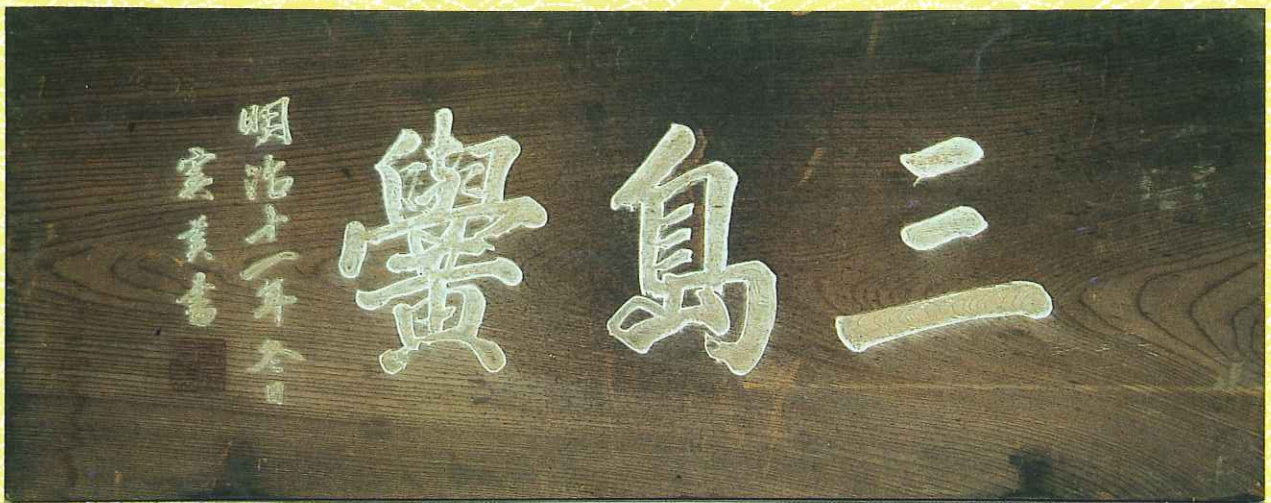 三島黌
明治十一年冬日
實美書